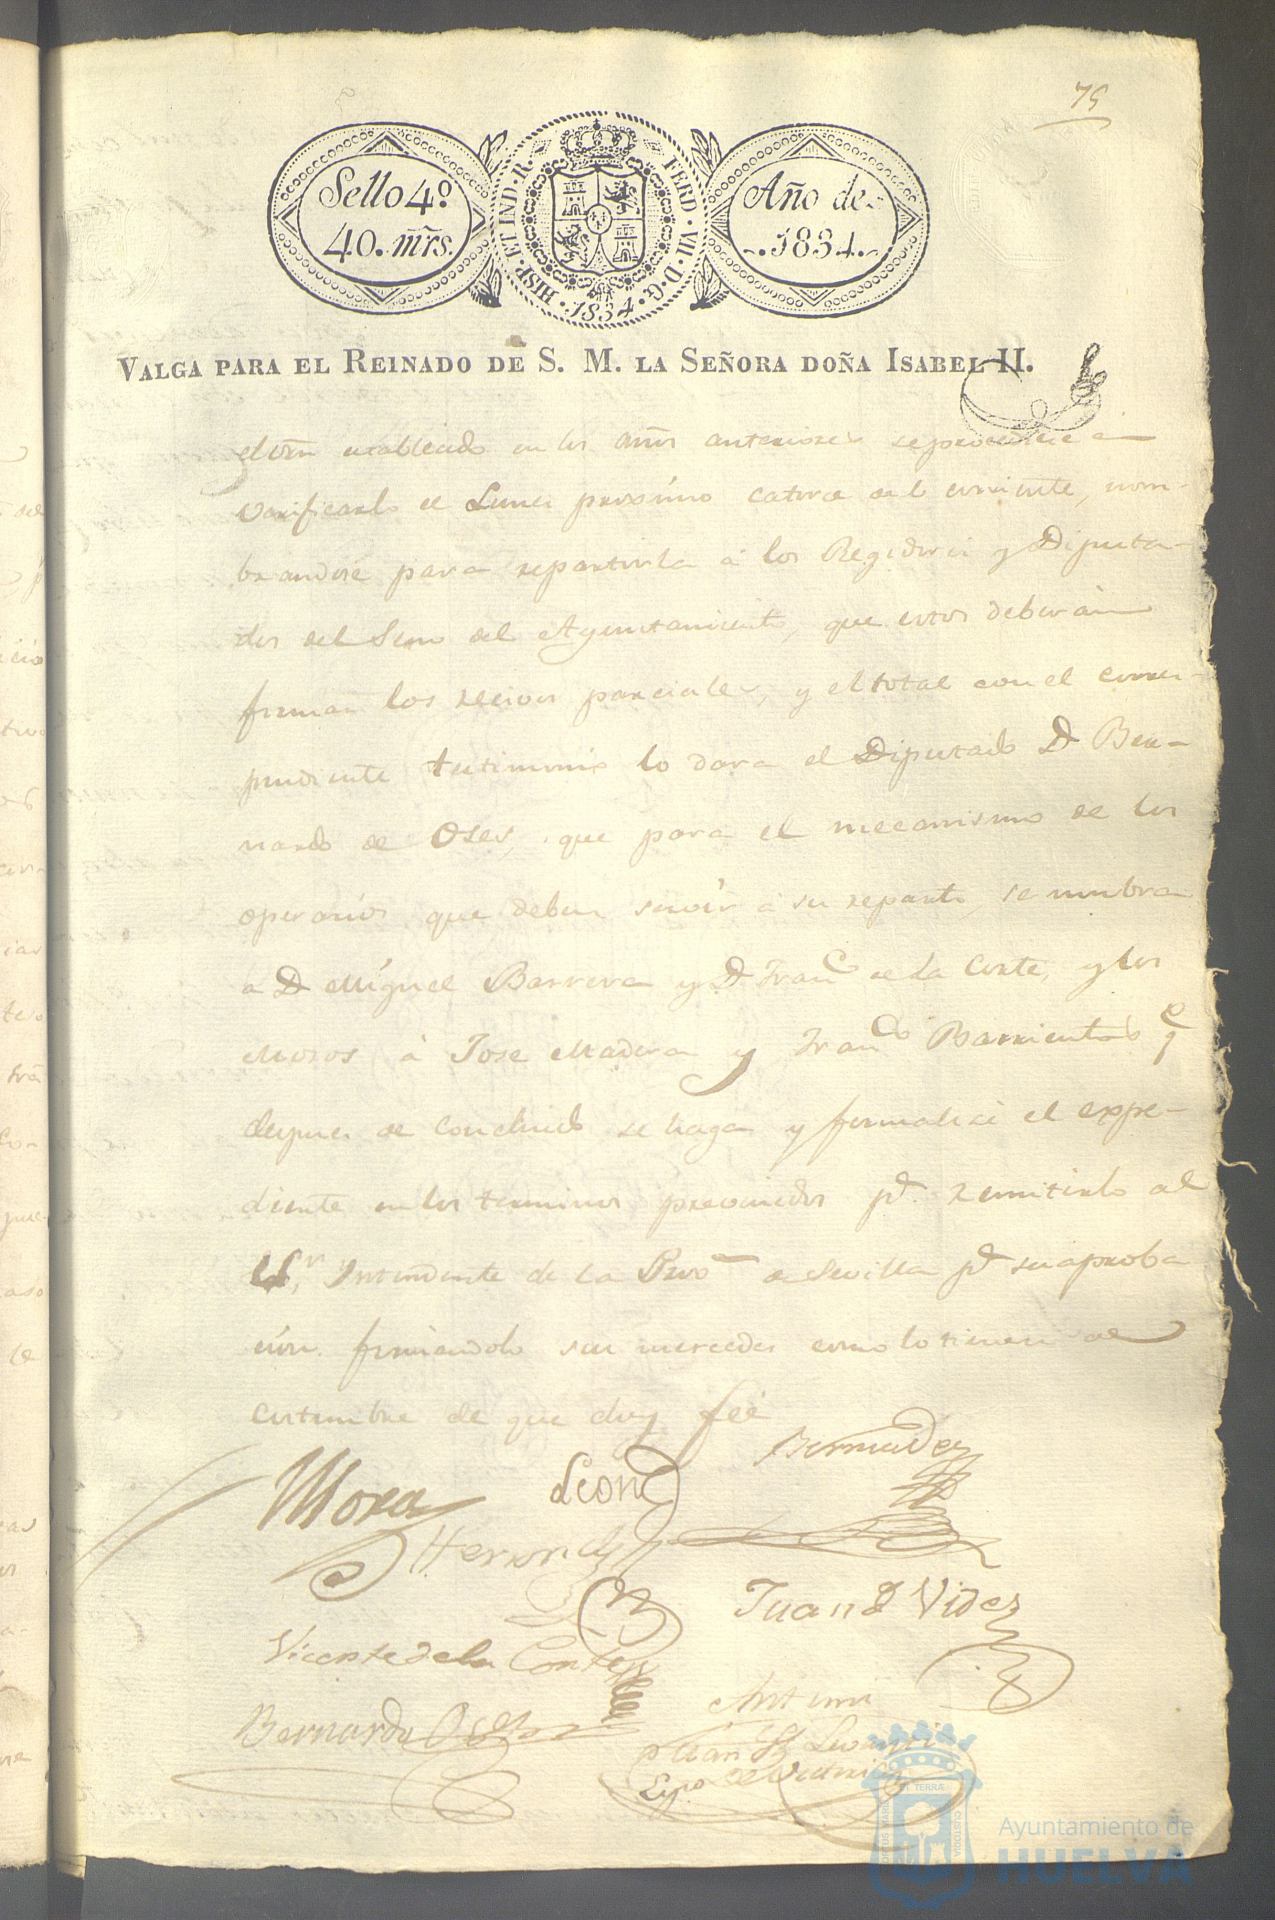 75
Sello 4º
40. mrs.
HISP · ET IND · R. FERD · VII · D · G · 1834 ·
Año de
1834.
VALGA PARA EL REINADO DE S. M. LA SEÑORA DOÑA ISABEL II.
establecido en los años anteriores se procediese á
verificarlo el Lunes proximo catorce del corriente, nom-
brandose para repartirla á los Regidores y Diputa-
dos del Seno del Ayuntamiento, que estos deberán
firmar los recivos parciales, y el total con el corres-
pondiente testimonio lo dara el Diputado Dn Ber-
nardo de Oses, que para el mecanismo de los
operarios que deben servir á su reparto, se nombra
a Dn Miguel Barrera y Dn Franco de la Corte, y los
Mozos á Jose Madera y Franco Barrientos qe
despues de concluido se haga y formalice el expe-
diente en los terminos prevenidos pa remitirlo al
Sr Intendente de la Prova de Sevilla pa su aproba
cion firmandolo sus mercedes como lo tienen de
costumbre de que doy fée
Mora Leon Bermudez
Hernandz
Juan Videz
Vicente de la Corte
Bernardo Oses
Antemi
Ayuntamiento de
HUELVA